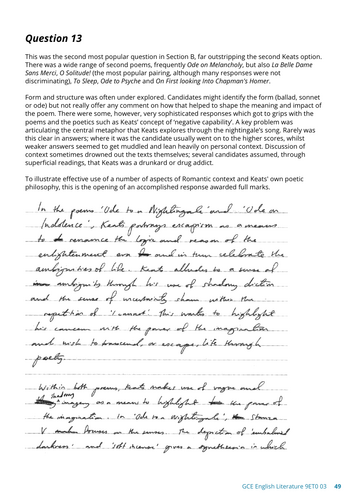 Question 13
This was the second most popular question in Section B, far outstripping the second Keats option.
There was a wide range of second poems, frequently Ode on Melancholy, but also La Belle Dame
Sans Merci, O Solitude! (the most popular pairing, although many responses were not
discriminating), To Sleep, Ode to Psyche and On First looking Into Chapman's Homer.
Form and structure was often under explored. Candidates might identify the form (ballad, sonnet
or ode) but not really offer any comment on how that helped to shape the meaning and impact of
the poem. There were some, however, very sophisticated responses which got to grips with the
poems and the poetics such as Keats' concept of 'negative capability'. A key problem was
articulating the central metaphor that Keats explores through the nightingale's song. Rarely was
this clear in answers; where it was the candidate usually went on to the higher scores, whilst
weaker answers seemed to get muddled and lean heavily on personal context. Discussion of
context sometimes drowned out the texts themselves; several candidates assumed, through
superficial readings, that Keats was a drunkard or drug addict.
To illustrate effective use of a number of aspects of Romantic context and Keats' own poetic
philosophy, this is the opening of an accomplished response awarded full marks.
In the poems 'Ode to a Nightingale' and 'Ode on
Indolence', Keats portrays escapism as a means
to renounce the logic and reason of the
enlightenment era and in turn celebrate the
ambiguities of life. Keats alludes to a sense of
ambiguity through his use of shadowy diction
and the sense of uncertainty shown within the
repetition of This works to highlight
his concern with the power of the imagination
and wish to transcend, or escape, life through
poetry.
Within both poems, Keats makes use of vague and
shadowy imagery as a means to highlight the power of
the imagination. In 'Ode to a Nightingale', Stanza
V focuses on the senses. The depiction of 'embalmed
darkness' and 'soft incense' gives a synesthesia in which
GCE English Literature 9ET0 03 49